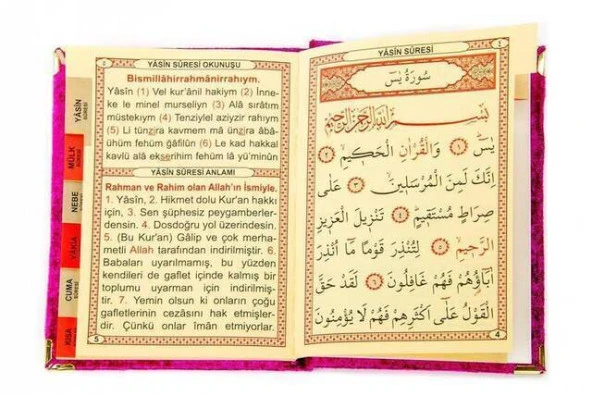 YÂSİN SÛRESİ OKUNUŞU
Bismillâhirrahmânirrahıym.
Yâsîn (1) Vel kur'ânil hakiym (2) İnne-
ke le minel murseliyn (3) Alâ sırâtım
müstekıym (4) Tenziylel aziyzir rahıym
(5) Li tünzira kavmem mâ ünzira âbâ-
ühüm fehüm gâfilûn (6) Le kad hakkal
kavlü alâ ekserihim fehüm lâ yü'minûn
YÂSİN SÛRESİ ANLAMI
Rahman ve Rahim olan Allah'ın İsmiyle.
1. Yâsîn, 2. Hikmet dolu Kur'an hakkı
için, 3. Sen şüphesiz peygamberler-
densin. 4. Dosdoğru yol üzerindesin.
5. (Bu Kur'an) Gâlip ve çok merha-
metli Allah tarafından indirilmiştir. 6.
Babaları uyarılmamış, bu yüzden
kendileri de gaflet içinde kalmış bir
toplumu uyarman için indirilmiş-
tir. 7. Yemin olsun ki onların çoğu
gafletlerinin cezasını hak etmişler-
dir. Çünkü onlar îmân etmiyorlar.
5
YÂSİN
SÛRESİ
MÜLK
SÛRESİ
NEBE
SÛRESİ
VAKIA
SÛRESİ
CUMA
SÛRESİ
KISA
YÂSİN SÛRESİ
٤
سُورَةُ يٰسٓ
بِسْمِ اللّٰهِ الرَّحْمٰنِ الرَّحِيمِ
يٰسٓ ﴿١﴾ وَالْقُرْاٰنِ الْحَكِيمِ ﴿٢﴾
اِنَّكَ لَمِنَ الْمُرْسَلِينَ ﴿٣﴾ عَلٰى
صِرَاطٍ مُسْتَقِيمٍ ﴿٤﴾ تَنْزِيلَ الْعَزِيزِ
الرَّحِيمِ ﴿٥﴾ لِتُنْذِرَ قَوْمًا مَٓا اُنْذِرَ
اٰبَٓاؤُهُمْ فَهُمْ غَافِلُونَ ﴿٦﴾ لَقَدْ حَقَّ
الْقَوْلُ عَلٰٓى اَكْثَرِهِمْ فَهُمْ لَا يُؤْمِنُونَ
4